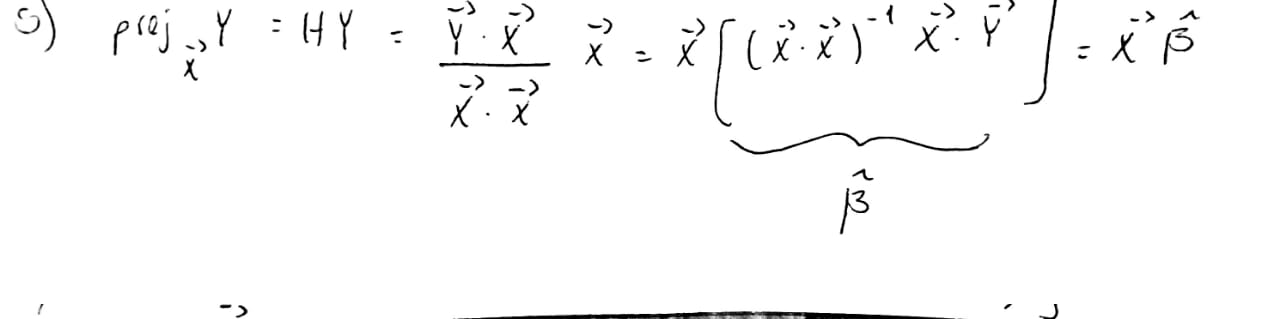 5) proj_{\vec{X}} Y = HY = \frac{\vec{Y} \cdot \vec{X}}{\vec{X} \cdot \vec{X}} \vec{X} = \vec{X} [ (\vec{X} \cdot \vec{X})^{-1} \vec{X} \cdot \vec{Y} ] = \vec{X} \hat{\beta}
\hat{\beta}